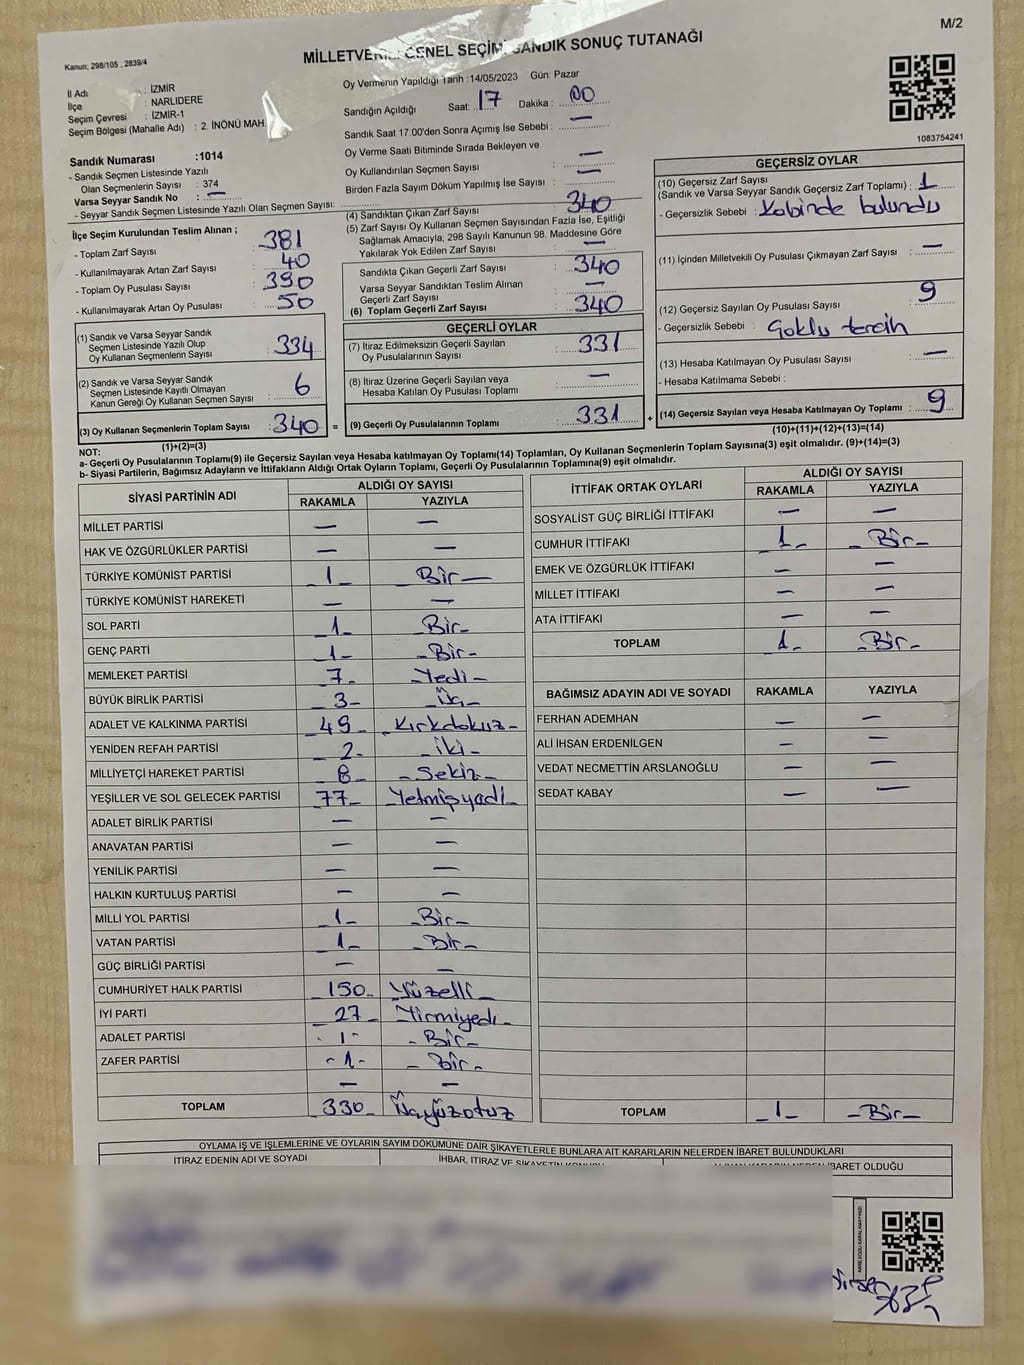 M/2
MİLLETVEKİLİ GENEL SEÇİMİ SANDIK SONUÇ TUTANAĞI
Kanun: 298/105 , 2839/4
İl Adı : İZMİR
İlçe : NARLIDERE
Seçim Çevresi : İZMİR-1
Seçim Bölgesi (Mahalle Adı) : 2. İNÖNÜ MAH.
Sandık Numarası :1014
- Sandık Seçmen Listesinde Yazılı
Olan Seçmenlerin Sayısı : 374
Varsa Seyyar Sandık No : —
- Seyyar Sandık Seçmen Listesinde Yazılı Olan Seçmen Sayısı:
İlçe Seçim Kurulundan Teslim Alınan ;
- Toplam Zarf Sayısı : 381
- Kullanılmayarak Artan Zarf Sayısı : 40
- Toplam Oy Pusulası Sayısı : 390
- Kullanılmayarak Artan Oy Pusulası : 50
(1) Sandık ve Varsa Seyyar Sandık
Seçmen Listesinde Yazılı Olup
Oy Kullanan Seçmenlerin Sayısı : 334
(2) Sandık ve Varsa Seyyar Sandık
Seçmen Listesinde Kayıtlı Olmayan
Kanun Gereği Oy Kullanan Seçmen Sayısı : 6
(3) Oy Kullanan Seçmenlerin Toplam Sayısı : 340 =
(1)+(2)=(3)
Oy Vermenin Yapıldığı Tarih :14/05/2023 Gün: Pazar
Sandığın Açıldığı Saat: 17 Dakika : 00
Sandık Saat 17.00'den Sonra Açımış İse Sebebi : —
Oy Verme Saati Bitiminde Sırada Bekleyen ve
Oy Kullandırılan Seçmen Sayısı : —
Birden Fazla Sayım Döküm Yapılmış İse Sayısı : —
(4) Sandıktan Çıkan Zarf Sayısı : 340
(5) Zarf Sayısı Oy Kullanan Seçmen Sayısından Fazla İse, Eşitliği
Sağlamak Amacıyla; 298 Sayılı Kanunun 98. Maddesine Göre
Yakılarak Yok Edilen Zarf Sayısı : —
Sandıkta Çıkan Geçerli Zarf Sayısı : 340
Varsa Seyyar Sandıktan Teslim Alınan
Geçerli Zarf Sayısı : —
(6) Toplam Geçerli Zarf Sayısı : 340
GEÇERLİ OYLAR
(7) İtiraz Edilmeksizin Geçerli Sayılan
Oy Pusulalarının Sayısı : 331
(8) İtiraz Üzerine Geçerli Sayılan veya
Hesaba Katılan Oy Pusulası Toplamı : —
(9) Geçerli Oy Pusulalarının Toplamı : 331 +
1083754241
GEÇERSİZ OYLAR
(10) Geçersiz Zarf Sayısı
(Sandık ve Varsa Seyyar Sandık Geçersiz Zarf Toplamı) : 1
- Geçersizlik Sebebi : Kabinde bulundu
(11) İçinden Milletvekili Oy Pusulası Çıkmayan Zarf Sayısı : —
(12) Geçersiz Sayılan Oy Pusulası Sayısı : 9
- Geçersizlik Sebebi : Çoklu tercih
(13) Hesaba Katılmayan Oy Pusulası Sayısı : —
- Hesaba Katılmama Sebebi :
(14) Geçersiz Sayılan veya Hesaba Katılmayan Oy Toplamı : 9
(10)+(11)+(12)+(13)=(14)
NOT:
a- Geçerli Oy Pusulalarının Toplamı(9) ile Geçersiz Sayılan veya Hesaba katılmayan Oy Toplamı(14) Toplamları, Oy Kullanan Seçmenlerin Toplam Sayısına(3) eşit olmalıdır. (9)+(14)=(3)
b- Siyasi Partilerin, Bağımsız Adayların ve İttifakların Aldığı Ortak Oyların Toplamı, Geçerli Oy Pusulalarının Toplamına(9) eşit olmalıdır.
SİYASİ PARTİNİN ADI ALDIĞI OY SAYISI
RAKAMLA YAZIYLA
MİLLET PARTİSİ — —
HAK VE ÖZGÜRLÜKLER PARTİSİ — —
TÜRKİYE KOMÜNİST PARTİSİ _1_ _Bir—
TÜRKİYE KOMÜNİST HAREKETİ — —
SOL PARTİ _1_ _Bir_
GENÇ PARTİ _1_ _Bir_
MEMLEKET PARTİSİ _7_ _Yedi_
BÜYÜK BİRLİK PARTİSİ _3_ _Üç_
ADALET VE KALKINMA PARTİSİ _49_ _Kırkdokuz_
YENİDEN REFAH PARTİSİ _2_ _iki_
MİLLİYETÇİ HAREKET PARTİSİ _8_ _Sekiz_
YEŞİLLER VE SOL GELECEK PARTİSİ _77_ _Yetmişyedi_
ADALET BİRLİK PARTİSİ — —
ANAVATAN PARTİSİ — —
YENİLİK PARTİSİ — —
HALKIN KURTULUŞ PARTİSİ — —
MİLLİ YOL PARTİSİ _1_ _Bir_
VATAN PARTİSİ _1_ _Bir_
GÜÇ BİRLİĞİ PARTİSİ — —
CUMHURİYET HALK PARTİSİ _150_ Yüzelli_
İYİ PARTİ _27_ _Yirmiyedi_
ADALET PARTİSİ -1- -Bir-
ZAFER PARTİSİ -1- -Bir-
— —
TOPLAM _330_ Üçyüzotuz
İTTİFAK ORTAK OYLARI ALDIĞI OY SAYISI
RAKAMLA YAZIYLA
SOSYALİST GÜÇ BİRLİĞİ İTTİFAKI — —
CUMHUR İTTİFAKI _1_ _Bir_
EMEK VE ÖZGÜRLÜK İTTİFAKI — —
MİLLET İTTİFAKI — —
ATA İTTİFAKI — —
TOPLAM _1_ _Bir_
BAĞIMSIZ ADAYIN ADI VE SOYADI RAKAMLA YAZIYLA
FERHAN ADEMHAN — —
ALİ İHSAN ERDENİLGEN — —
VEDAT NECMETTİN ARSLANOĞLU — —
SEDAT KABAY — —
TOPLAM _1_ _Bir_
OYLAMA İŞ VE İŞLEMLERİNE VE OYLARIN SAYIM DÖKÜMÜNE DAİR ŞİKAYETLERLE BUNLARA AİT KARARLARIN NELERDEN İBARET BULUNDUKLARI
İTİRAZ EDENİN ADI VE SOYADI
İHBAR, İTİRAZ VE ŞİKAYETİN KONUSU
İBARET OLDUĞU